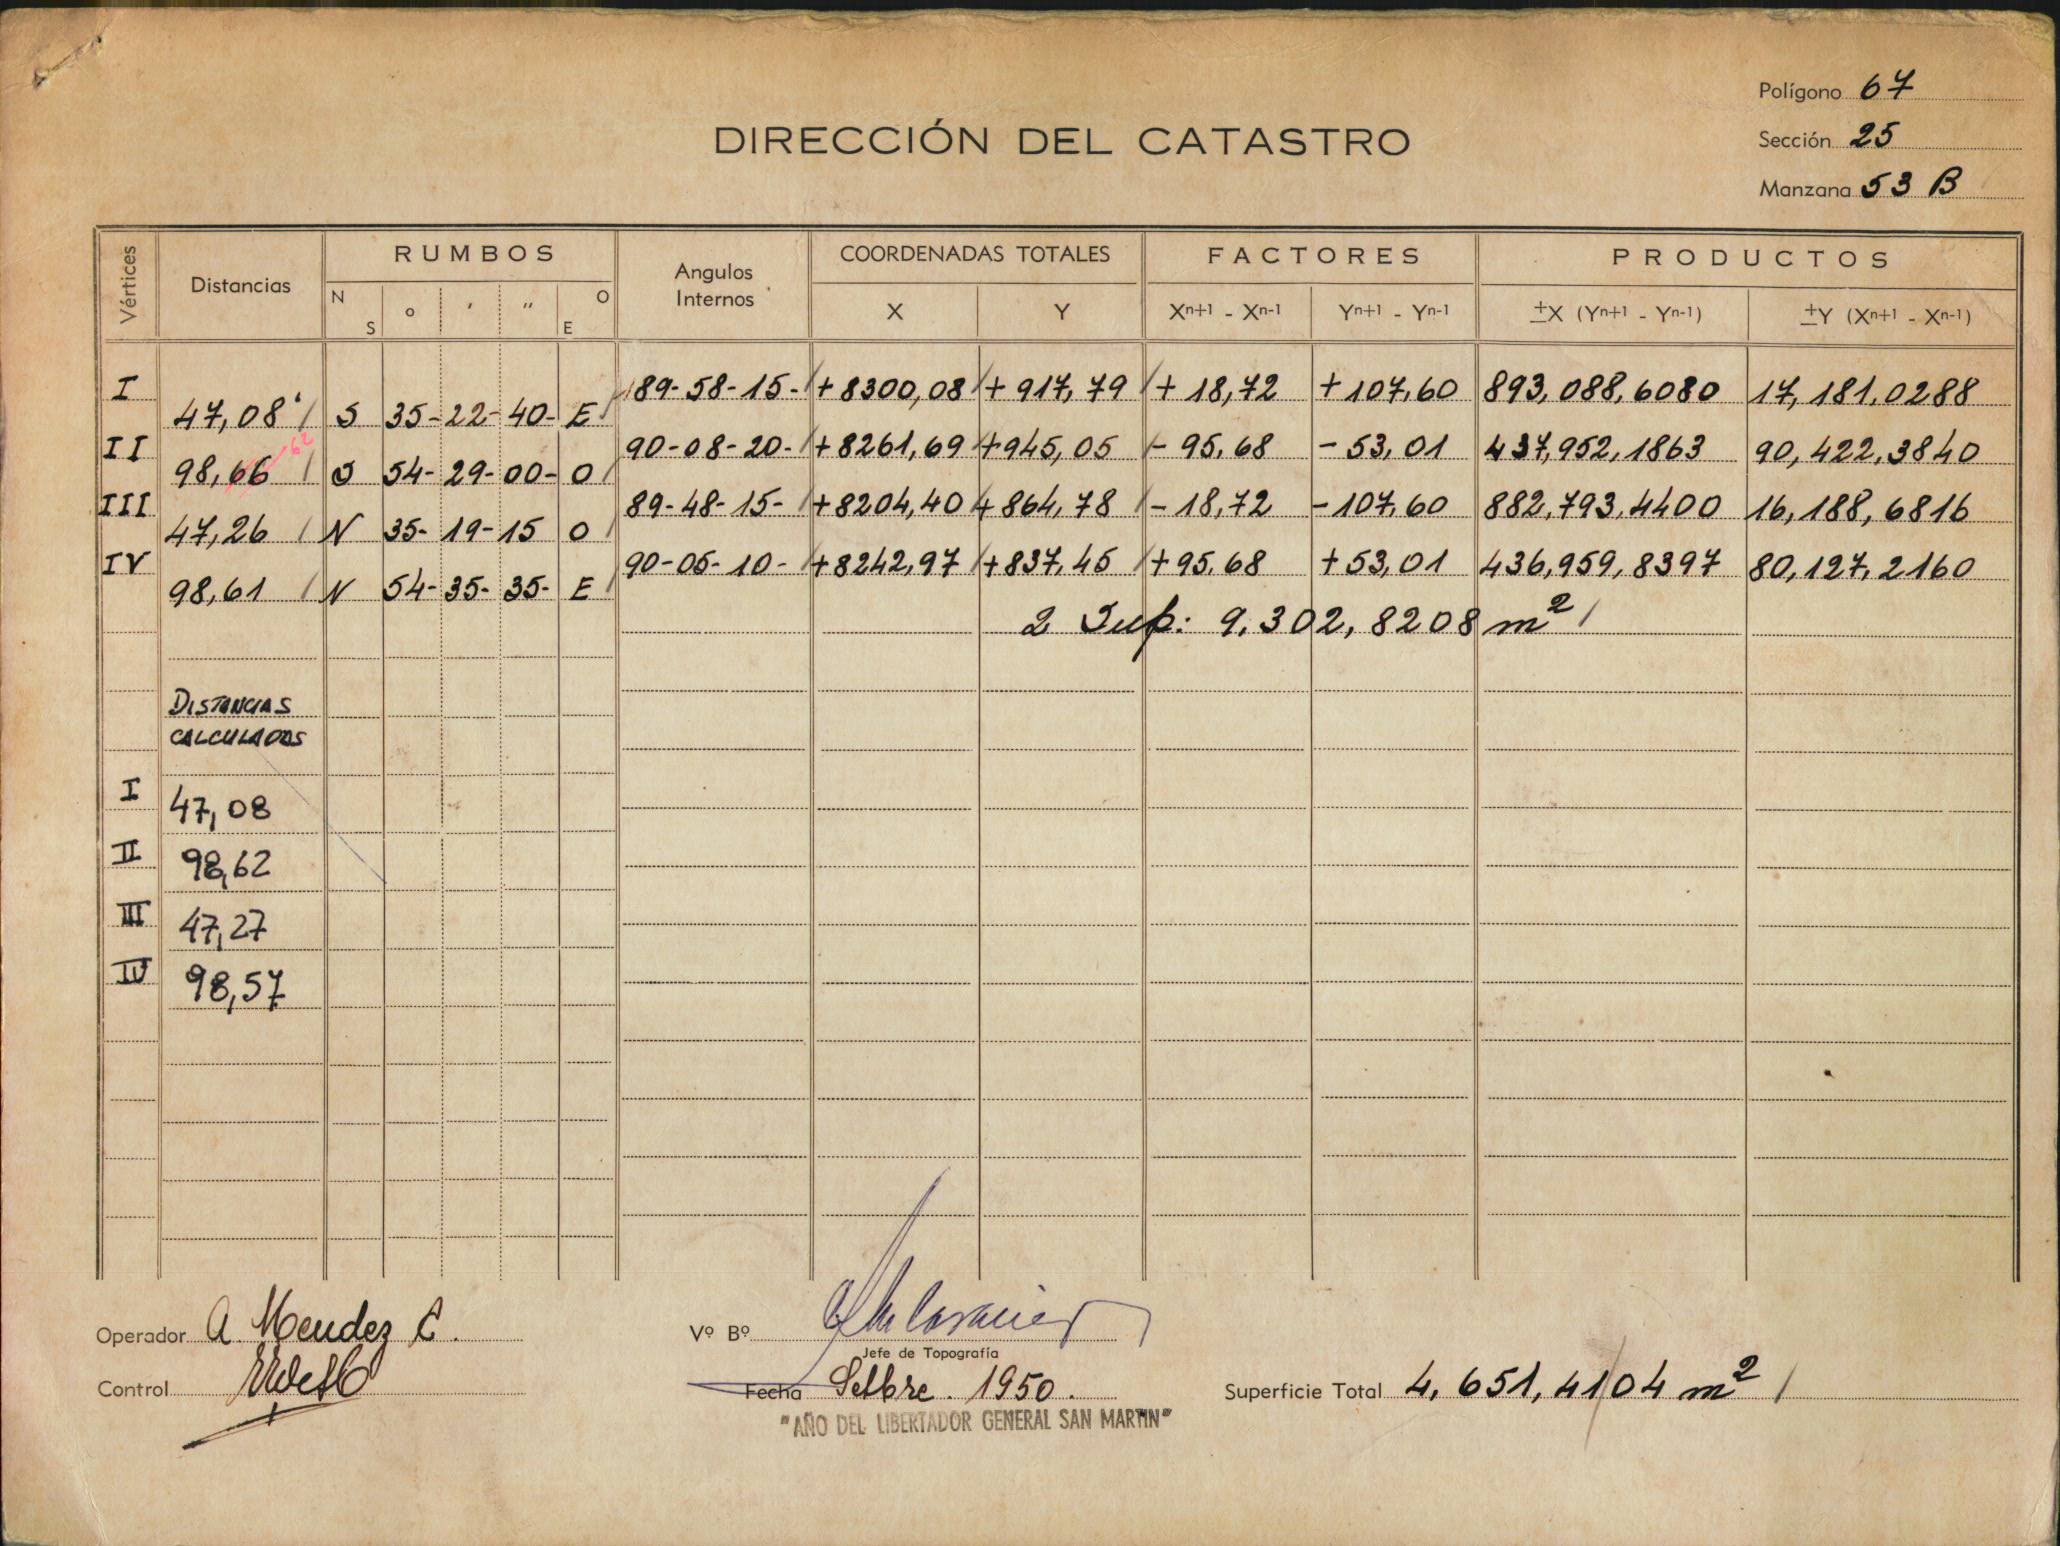 Polígono 67
DIRECCIÓN DEL CATASTRO
Sección 25
Manzana 53 B
Vértices Distancias RUMBOS Angulos Internos COORDENADAS TOTALES FACTORES PRODUCTOS
N S ° ' " O E X Y Xn+1 - Xn-1 Yn+1 - Yn-1 ±X (Yn+1 - Yn-1) ±Y (Xn+1 - Xn-1)
I 89-58-15- +8300,08 +917,79 +18,72 +107,60 893,088,6080 17,181,0288
47,08 S 35-22-40- E
II 90-08-20- +8261,69 +945,05 -95,68 -53,01 437,952,1863 90,422,3840
98,66 62 S 54-29-00- O
III 89-48-15- +8204,40 +864,78 -18,72 -107,60 882,793,4400 16,188,6816
47,26 N 35-19-15 O
IV 90-05-10- +8242,97 +837,45 +95,68 +53,01 436,959,8397 80,127,2160
98,61 N 54-35-35- E
2 Sup: 9,302,8208 m²
DISTANCIAS
CALCULADAS
I 47,08
II 98,62
III 47,27
IV 98,57
Operador A. Mendez C.
Vº Bº
Jefe de Topografía
Control
Fecha Setbre. 1950.
Superficie Total 4,651,4104 m²
"AÑO DEL LIBERTADOR GENERAL SAN MARTIN"